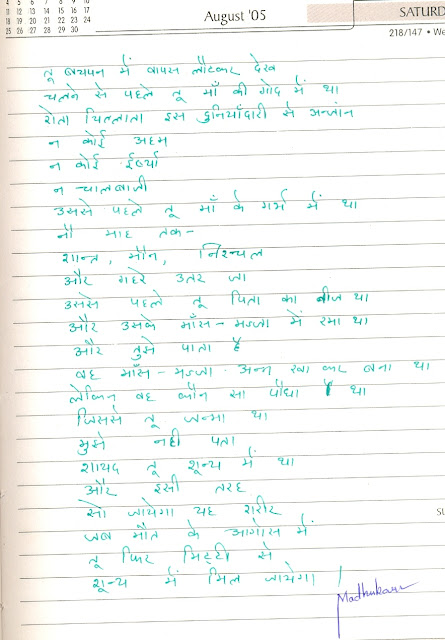 4 5 6 7 8 9 10
11 12 13 14 15 16 17
18 19 20 21 22 23 24
25 26 27 28 29 30
August '05
SATURD
218/147 • We
तू बचपन में वापस लौटकर देख
चलने से पहले तू माँ की गोद में था
रोता चिल्लाता इस दुनियाँदारी से अन्जांन
न कोई अहम
न कोई ईर्ष्या
न चालबाजी
उससे पहले तू माँ के गर्भ में था
नौ माह तक-
शान्त, मौन, निश्चल
और गहरे उतर जा
उससे पहले तू पिता का बीज था
और उसके माँस-मज्जा में रमा था
और तुझे पाता है
वह माँस-मज्जा अन्न खा कर बना था
लेकिन वह कौन सा पौधा था
जिससे तू जन्मा था
मुझे नही पता
शायद तू शून्य में था
और इसी तरह
सो जायेगा यह शरीर
जब मौत के आगोस में
तू फिर मिट्टी से
शून्य में मिल जायेगा!
SU
Madhukar